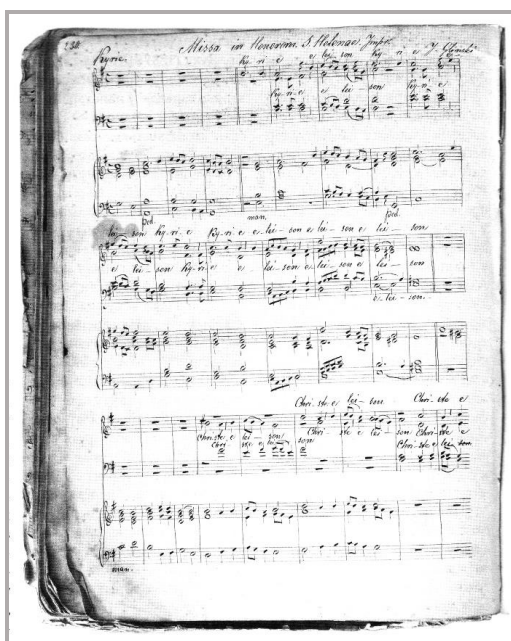 234
Missa in Honorem S. Helenae Impr.
Kyrie
Ky-ri-e e lei son Ky-ri-e
Ky-ri-e e lei son Ky-ri-e
Ped.
man.
Ped.
lei-son Ky-ri-e Ky-ri-e e-lei-son e lei-son e lei-son
e lei-son Ky-ri-e e lei-son e lei-son e lei-son
e lei-son.
Chri-ste e lei-son Chri-ste e
Chri-ste e lei-son Chri-ste e lei-son Chri-ste e
Chri-ste e lei son Chri-ste e lei son
man.